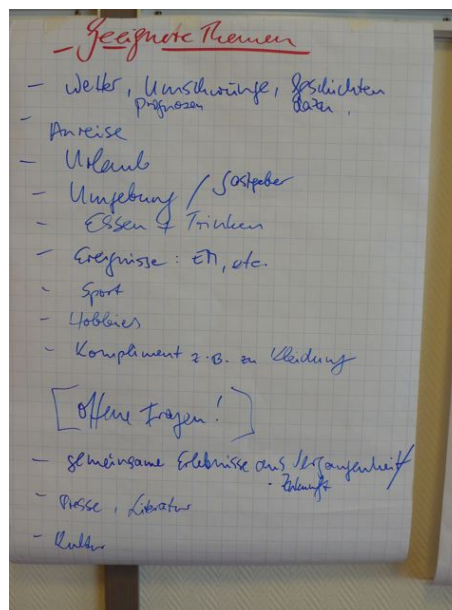 - Geeignete Themen
- Wetter, Umschwünge, Geschichten
Prognosen dazu,
-
Anreise
- Urlaub
- Umgebung / Gastgeber
- Essen + Trinken
- Ereignisse: EM, etc.
- Sport
- Hobbies
- Kompliment z.B. zu Kleidung
[offene Fragen!]
- gemeinsame Erlebnisse aus Vergangenheit/
- Zukunft
- Presse, Literatur
- Kultur